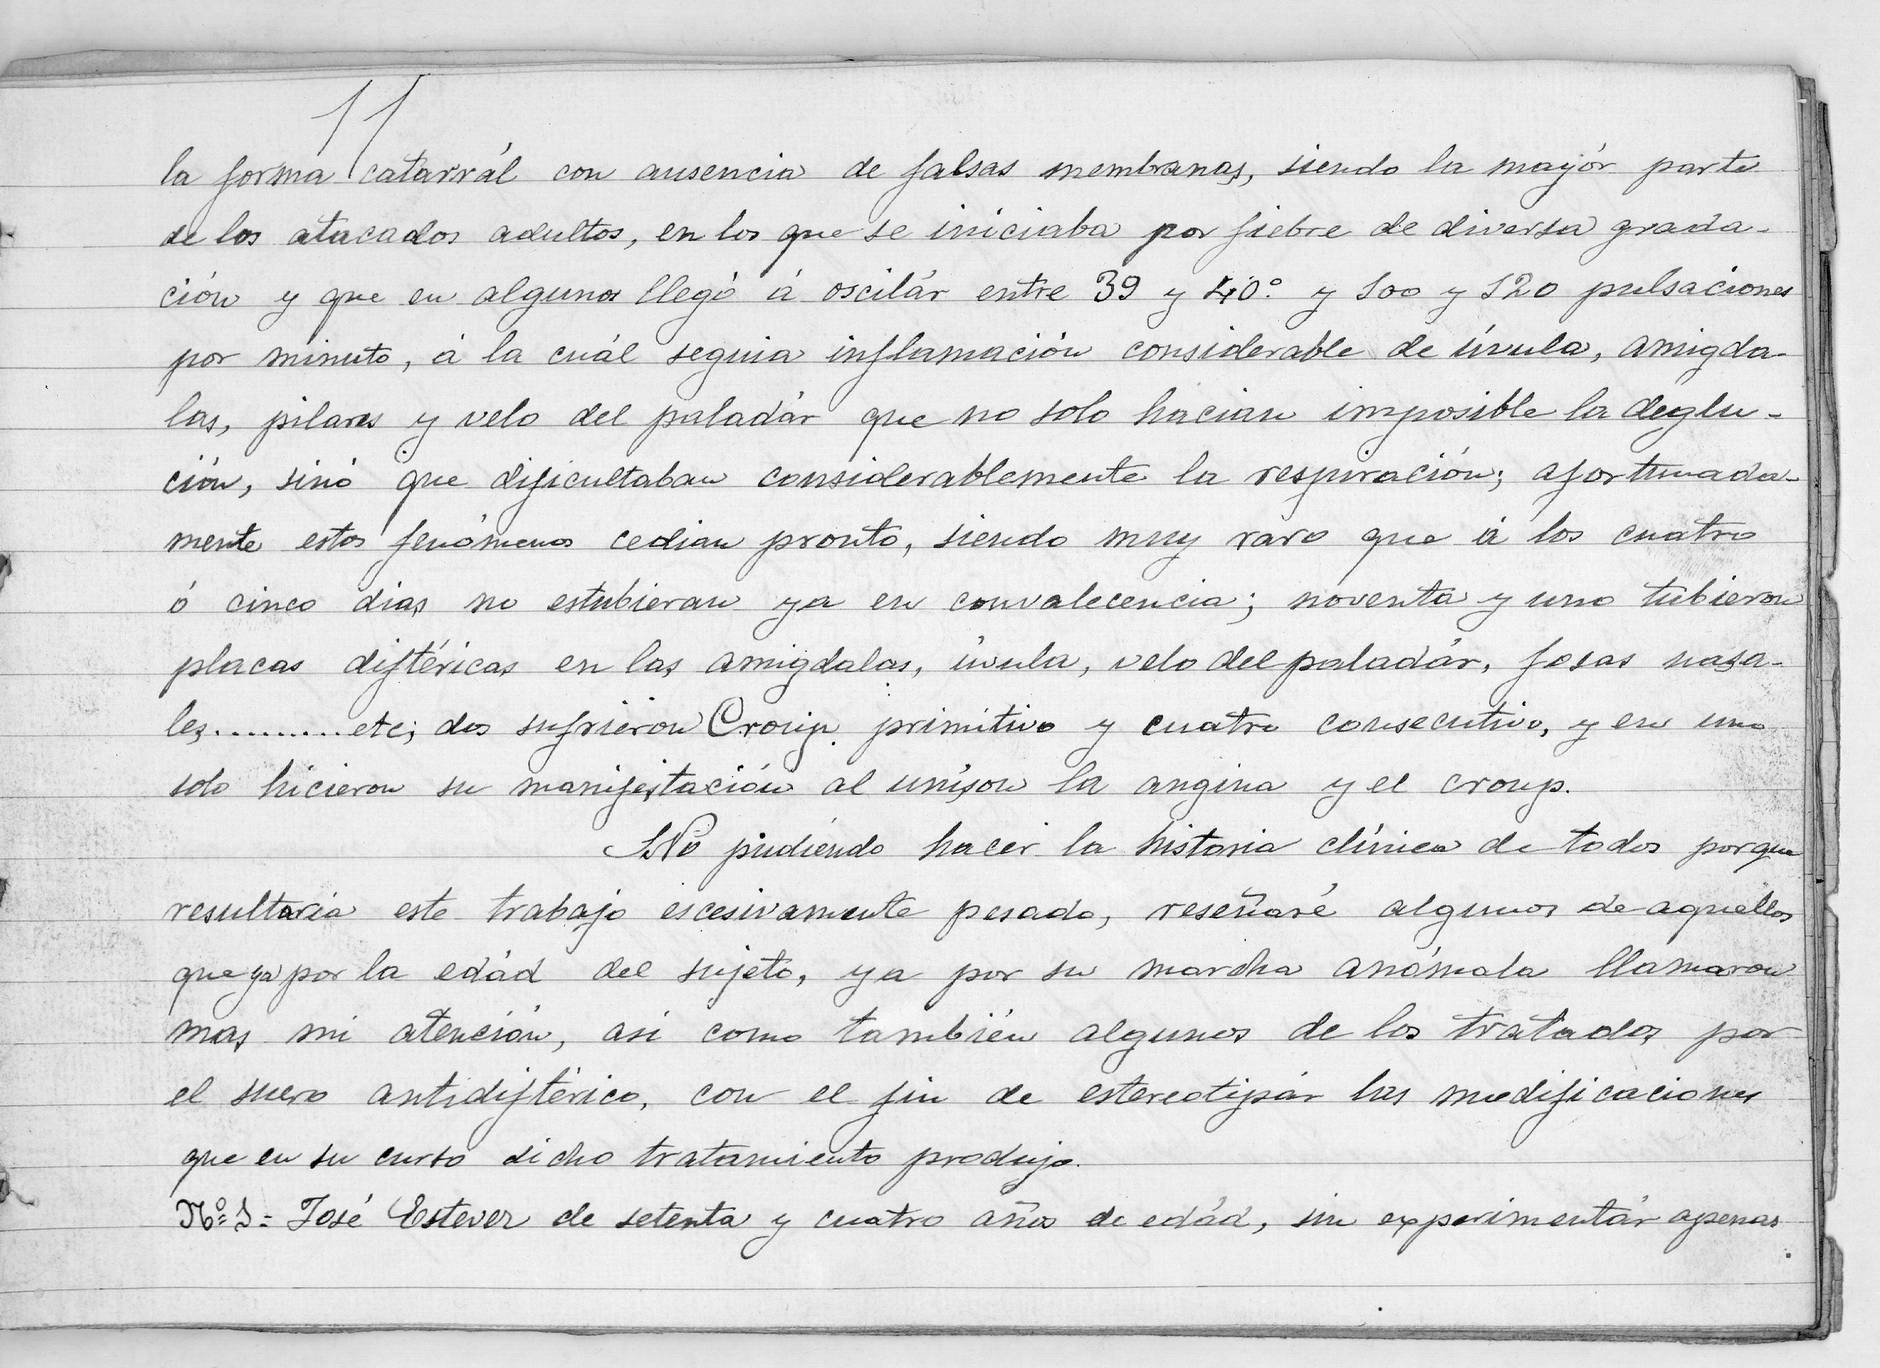 11
la forma catarrál con ausencia de falsas membranas, siendo la mayór parte
de los atacados adultos, en los que se iniciaba por fiebre de diversa grada-
ción y que en algunos llegó á oscilár entre 39 y 40º y 100 y 120 pulsaciones
por minuto, á la cuál seguia inflamación considerable de úvula, amigda-
las, pilares y velo del paladár que no solo hacian imposible la deglu-
ción, sinó que dificultaban considerablemente la respiración; afortunada-
mente estos fenómenos cedian pronto, siendo muy raro que á los cuatro
ó cinco dias no estubieran ya en convalecencia; noventa y uno tubieron
placas diftéricas en las amigdalas, úvula, velo del paladár, fosas nasa-
les..........etc; dos sufrieron Croup primitivo y cuatro consecutivo, y en uno
solo hicieron su manifestación al unison la angina y el croup.
No pudiendo hacer la historia clínica de todos porque
resultaria este trabajo escesivamente pesado, reseñaré algunos de aquellos
que ya por la edád del sujeto, ya por su marcha anómala llamaron
mas mi atención, asi como también algunos de los tratados por
el suero antidiftérico, con el fin de estereotipár las modificaciones
que en su curso dicho tratamiento produjo.
Nº 1= José Estever de setenta y cuatro años de edád, sin experimentár apenas